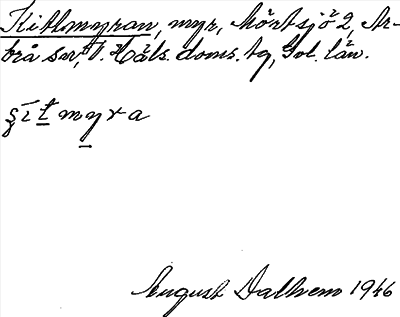 Kitlmyran, myr, Mörtsjö 2, Ar-
brå sn, V. Häls. doms. tg, Gvl. län.
ʂit myra
August Dalhem 1946